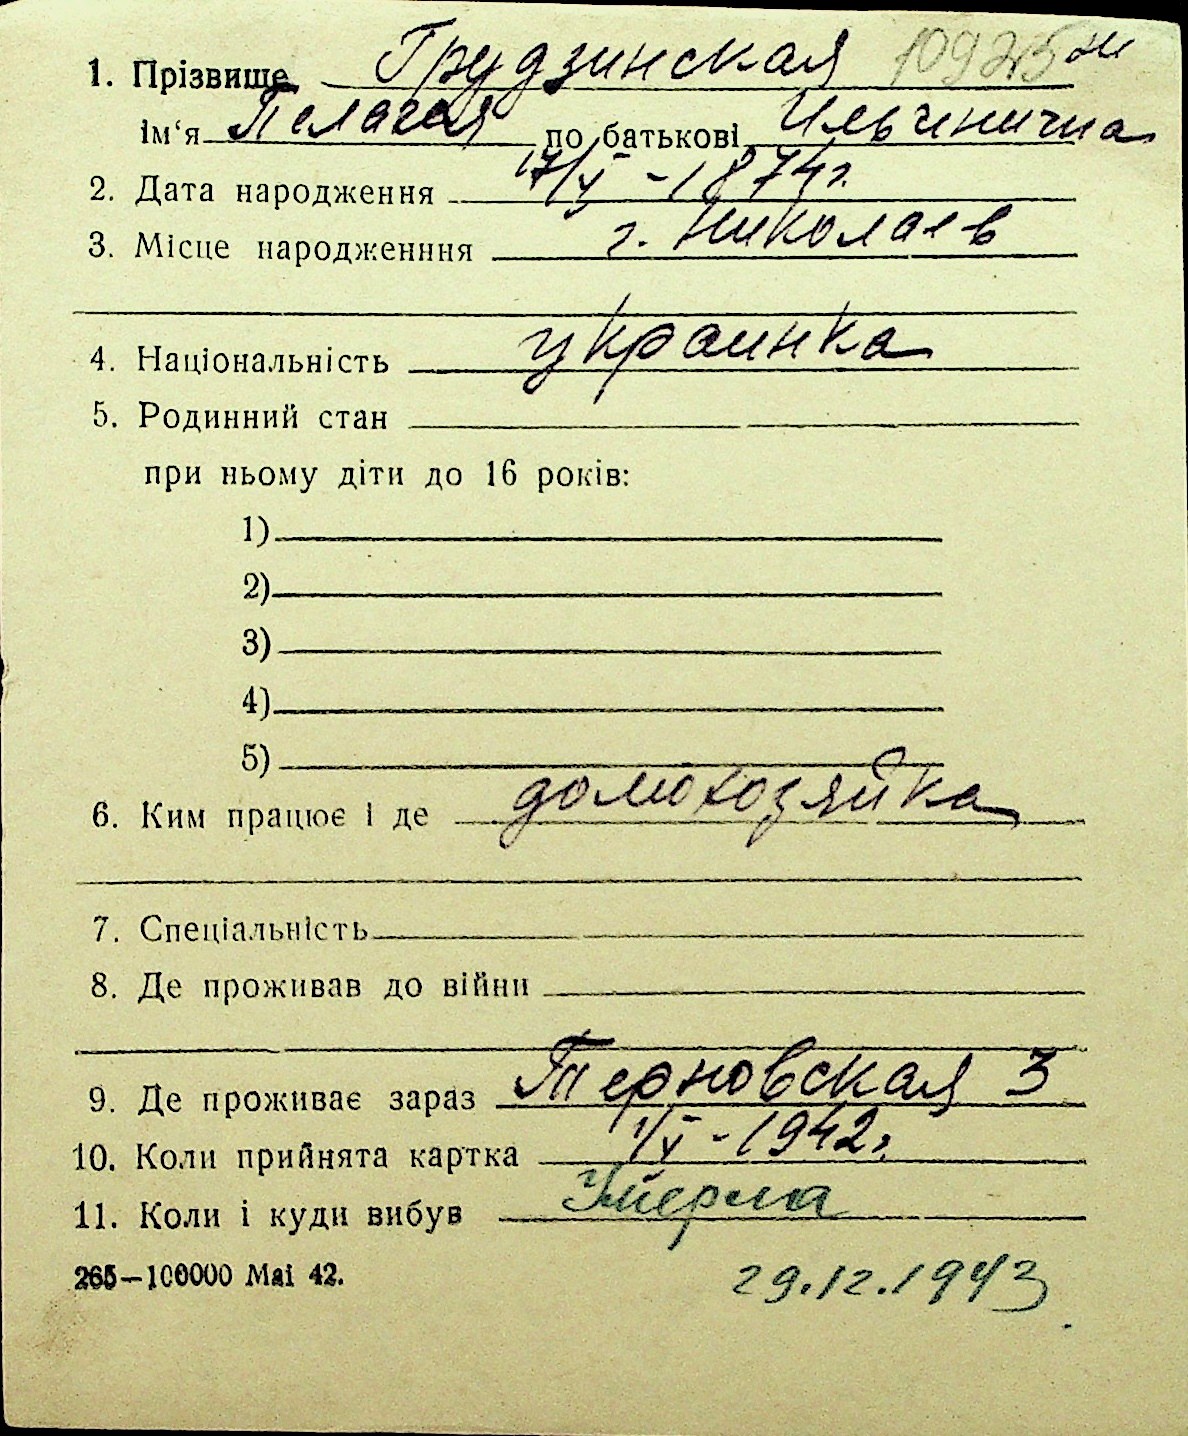 1. Прізвище Грудзинская 10925 ж
ім‘я Пелагея по батькові Ильчинична
2. Дата народження 17/V -1874 г.
3. Місце народженння г. Николаев
4. Національність украинка
5. Родинний стан
при ньому діти до 16 років:
1)
2)
3)
4)
5)
6. Ким працює і де домохозяйка
7. Спеціальність
8. Де проживав до війни
9. Де проживає зараз Терновская 3
10. Коли прийнята картка 1/X -1942 г.
11. Коли і куди вибув Умерла
265—100000 Mai 42. 29.12.1943